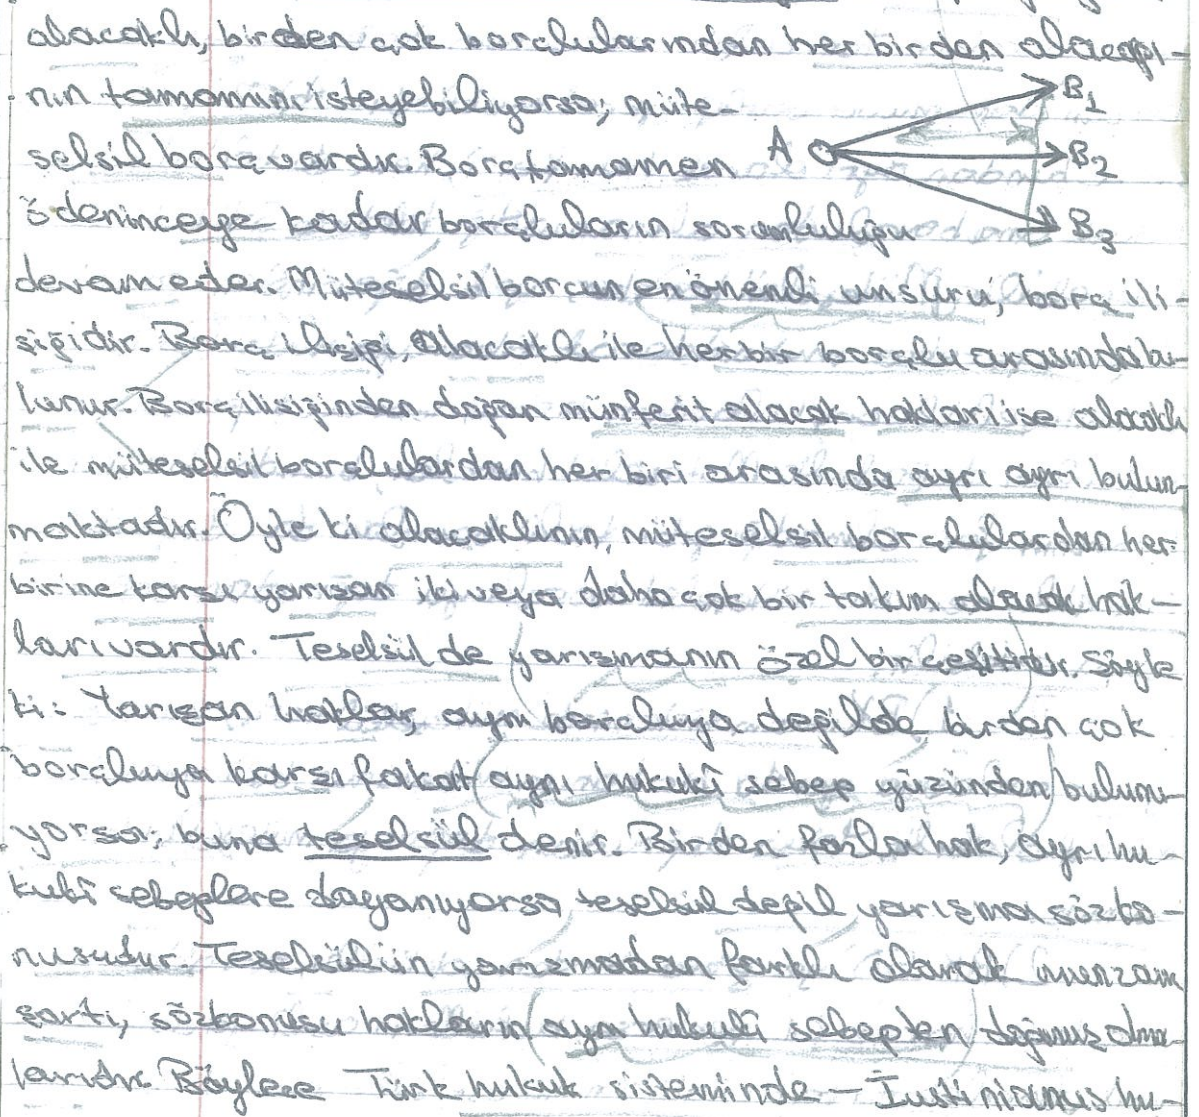 alacaklı, birden çok borçlularından her birden alacağı-
nın tamamını isteyebiliyorsa; müte-
selsil borç vardır. Borç tamamen
ödeninceye kadar borçluların sorumluluğu
A B1
B2
B3
devam eder. Müteselsil borcun en önemli unsuru, borç ili-
şiğidir. Borç ilişiği, alacaklı ile her bir borçlu arasında bu-
lunur. Borç ilişiğinden doğan münferit alacak hakları ise alacaklı
ile müteselsil borçlulardan her biri arasında ayrı ayrı bulun-
maktadır. Öyle ki alacaklının, müteselsil borçlulardan her
birine karşı yarışan iki veya daha çok bir takım alacak hak-
ları vardır. Teselsül de yarışmanın özel bir çeşitidir. Şöyle
ki: Yarışan haklar, aynı borçluya değilde birden çok
borçluya karşı fakat (aynı hukukî sebep yüzünden) bulunu-
yorsa; buna teselsül denir. Birden fazla hak, ayrı hu-
kukî sebeplere dayanıyorsa teselsül değil yarışma sözko-
nusudur. Teselsülün yarışmadan farklı olarak munzam
şartı, sözkonusu hakların (aynı hukukî sebepten) doğmuş olma-
larıdır. Böylece Türk hukuk sisteminde — Justinianus hu-